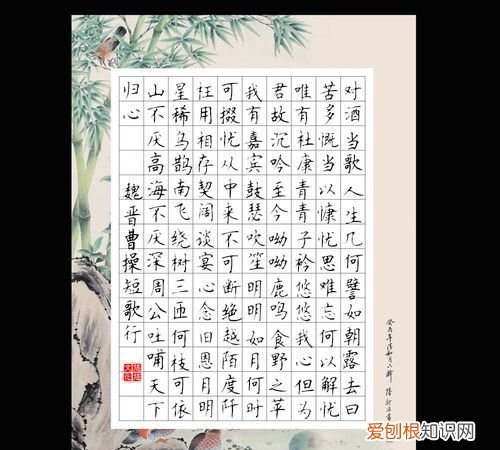 对酒当歌人生几何譬如朝露去日
苦多慨当以慷忧思难忘何以解忧
唯有杜康青青子衿悠悠我心但为
君故沉吟至今呦呦鹿鸣食野之苹
我有嘉宾鼓瑟吹笙明明如月何时
可掇忧从中来不可断绝越陌度阡
枉用相存契阔谈宴心念旧恩月明
星稀乌鹊南飞绕树三匝何枝可依
山不厌高海不厌深周公吐哺天下
归心
魏晋曹操短歌行
爱刨根知识网